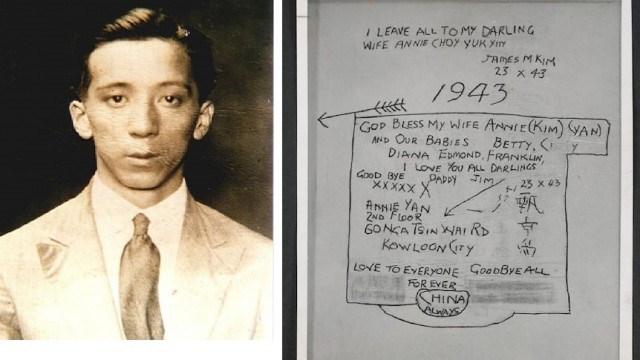 I LEAVE ALL TO MY DARLING
WIFE ANNIE CHOY YUK YIN
JAMES M KIM
23 X 43
1943
GOD BLESS MY WIFE ANNIE (KIM) (YAN)
AND OUR BABIES BETTY,
DIANA EDMOND, FRANKLIN,
I LOVE YOU ALL DARLINGS
GOOD BYE DADDY JIM
XXXXX X 23 X 43
ANNIE YAN
2ND FLOOR
KOWLOON CITY
LOVE TO EVERYONE GOODBYE ALL
FOR EVER
CHINA
ALWAYS